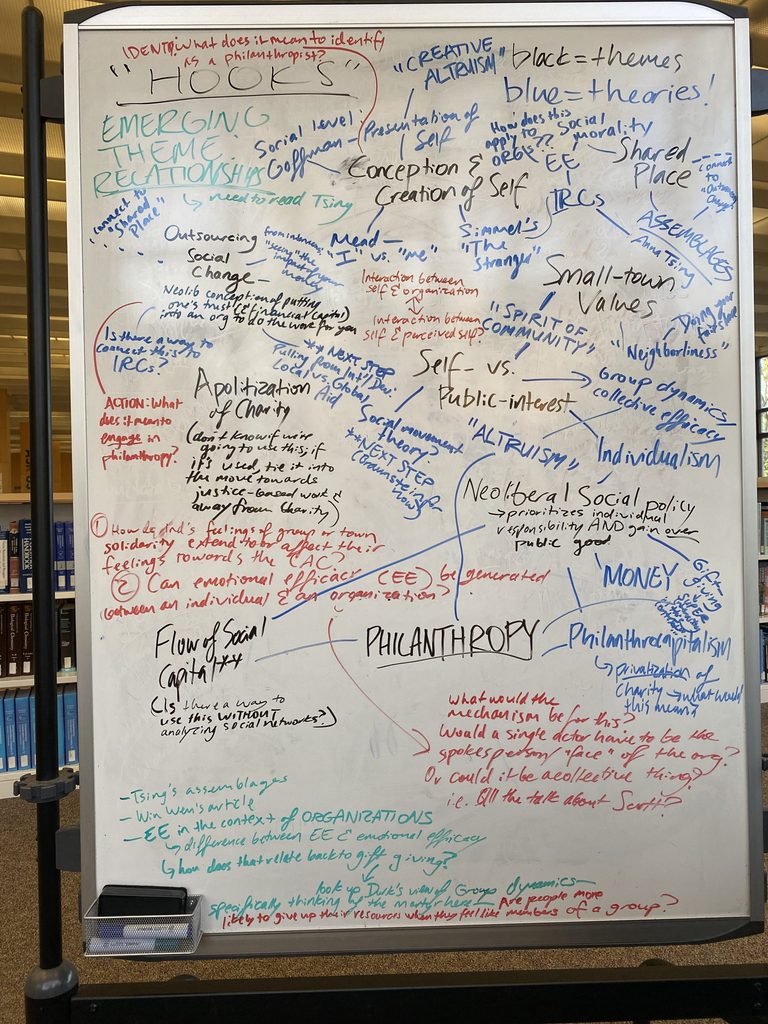 IDENTITY: What does it mean to identify
as a philanthropist?
"HOOKS"
"CREATIVE
ALTRUISM"
black = themes
blue = theories!
EMERGING
THEME
RELATIONSHIPS
↳ need to read Tsing
Social level:
Goffman —
Presentation of
Self
How does this
apply to
ORGs??
Social
morality
EE
IRCs
Conception &
Creation of Self
Shared
Place
connect
to
"Outsourcing
Change"
ASSEMBLAGES
Anna Tsing
connect to
"Shared
Place"
Outsourcing
Social
Change —
from interviews:
"seeing" the
impact of your
money
Neolib conception of putting
one's trust (& financial capital)
into an org to do the work for you
Mead —
"I" vs. "me"
Simmel's
"The
Stranger"
Interaction between
self & organization
Interaction between
self & perceived self?
Small-town
Values
"SPIRIT OF
COMMUNITY"
"Neighborliness"
Doing your
fair share
Is there a way to
connect this to
IRCs?
** NEXT STEP
Pulling from Int'l Dev.
Local vs. Global
Aid
Self- vs.
Public-interest
Group dynamics/
collective efficacy
ACTION: What
does it mean to
engage in
philanthropy?
Apolitization
of Charity
(don't know if we're
going to use this; if
it's used, tie it into
the move towards
justice-based work &
away from charity)
Social movement
theory?
** NEXT STEP
"ALTRUISM"
Individualism
Neoliberal Social policy
→ prioritizes individual
responsibility AND gain over
public good
① How do ind's feelings of group or town
solidarity extend to or affect their
feelings towards the CAC?
② Can emotional efficacy (EE) be generated
between an individual & an organization?
"MONEY
Gift-
giving
Flow of Social
Capital**
(Is there a way to
use this WITHOUT
analyzing social networks?)
PHILANTHROPY
Philanthrocapitalism
↳ privatization of
Charity → what would
this mean?
What would the
mechanism be for this?
Would a single actor have to be the
spokesperson/"face" of the org?
Or could it be a collective thing?
i.e. All the talk about Scott?
- Tsing's assemblages
- Win Wen's article
- EE in the context of ORGANIZATIONS
↳ difference between EE & emotional efficacy
↳ how does that relate back to gift giving?
look up Durk's view of Group dynamics —
specifically thinking of the martyr here — Are people more
likely to give up their resources when they feel like members of a group?